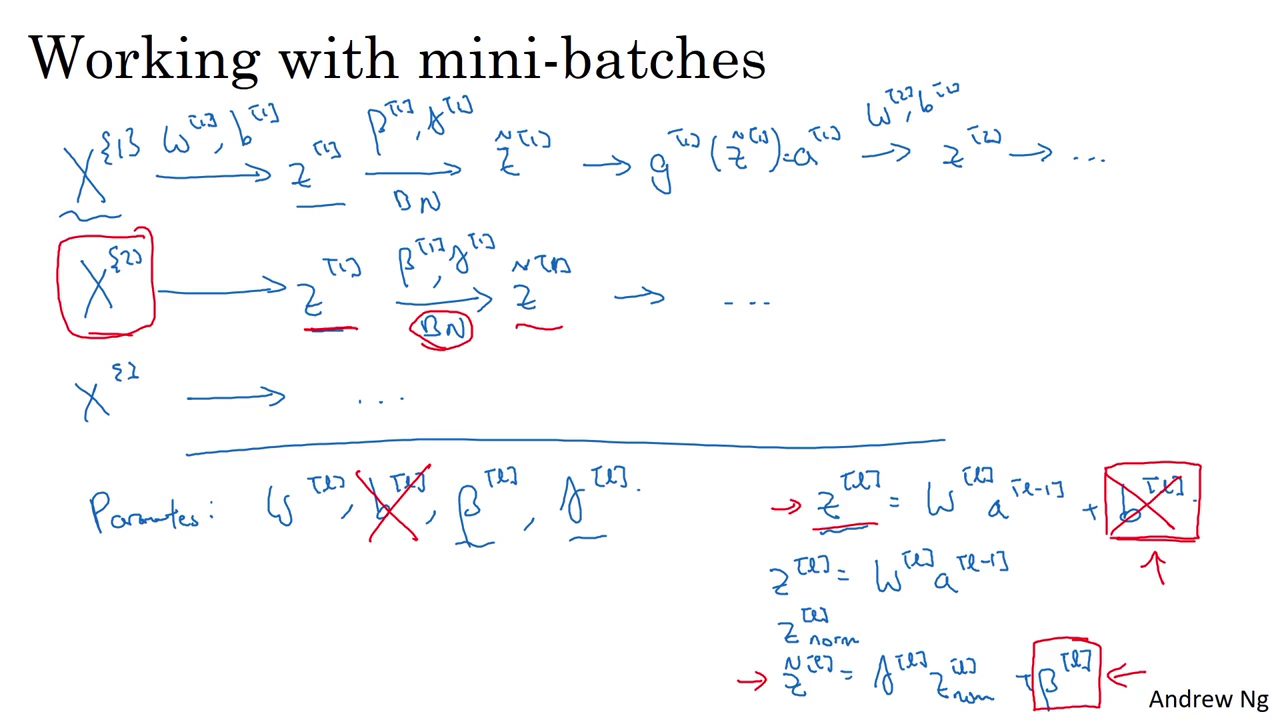 Working with mini-batches
X^{1} W^[1], b^[1] → z^[1] β^[1], γ^[1] → BN z̃^[1] → g^[1](z̃^[1]) = a^[1] W^[2], b^[2] → z^[2] → ...
X^{2} → z^[1] β^[1], γ^[1] → BN z̃^[1] → ...
X^{3} → ...
Parameters: W^[l], b^[l], β^[l], γ^[l].
→ z^[l] = W^[l] a^[l-1] + b^[l].
z^[l] = W^[l] a^[l-1]
z^[l]norm
→ z̃^[l] = γ^[l] z^[l]norm + β^[l] ←
Andrew Ng